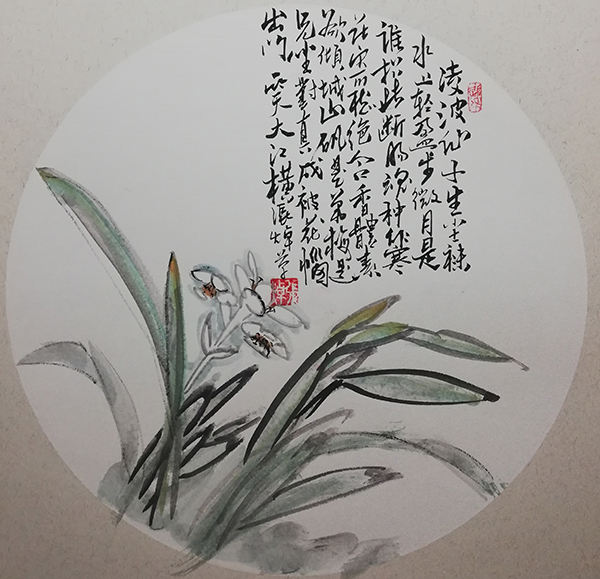 凌波仙子生尘襪
水上轻盈步微月是
谁招此断肠魂种作寒
花寄愁绝含香體素
欲傾城山矾是弟梅是
兄坐對真成被花惱
出门一笑大江横